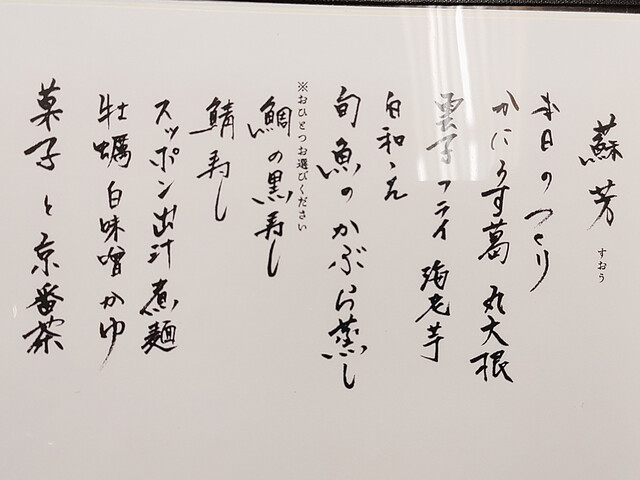 蘇芳
すおう
本日のつくり
かにうす葛 丸大根
雲子フライ 海老芋
白和え
旬魚のかぶら蒸し
※おひとつお選びください
鯛の黒寿し
鯖寿し
スッポン出汁煮麺
牡蠣白味噌かゆ
菓子と京番茶